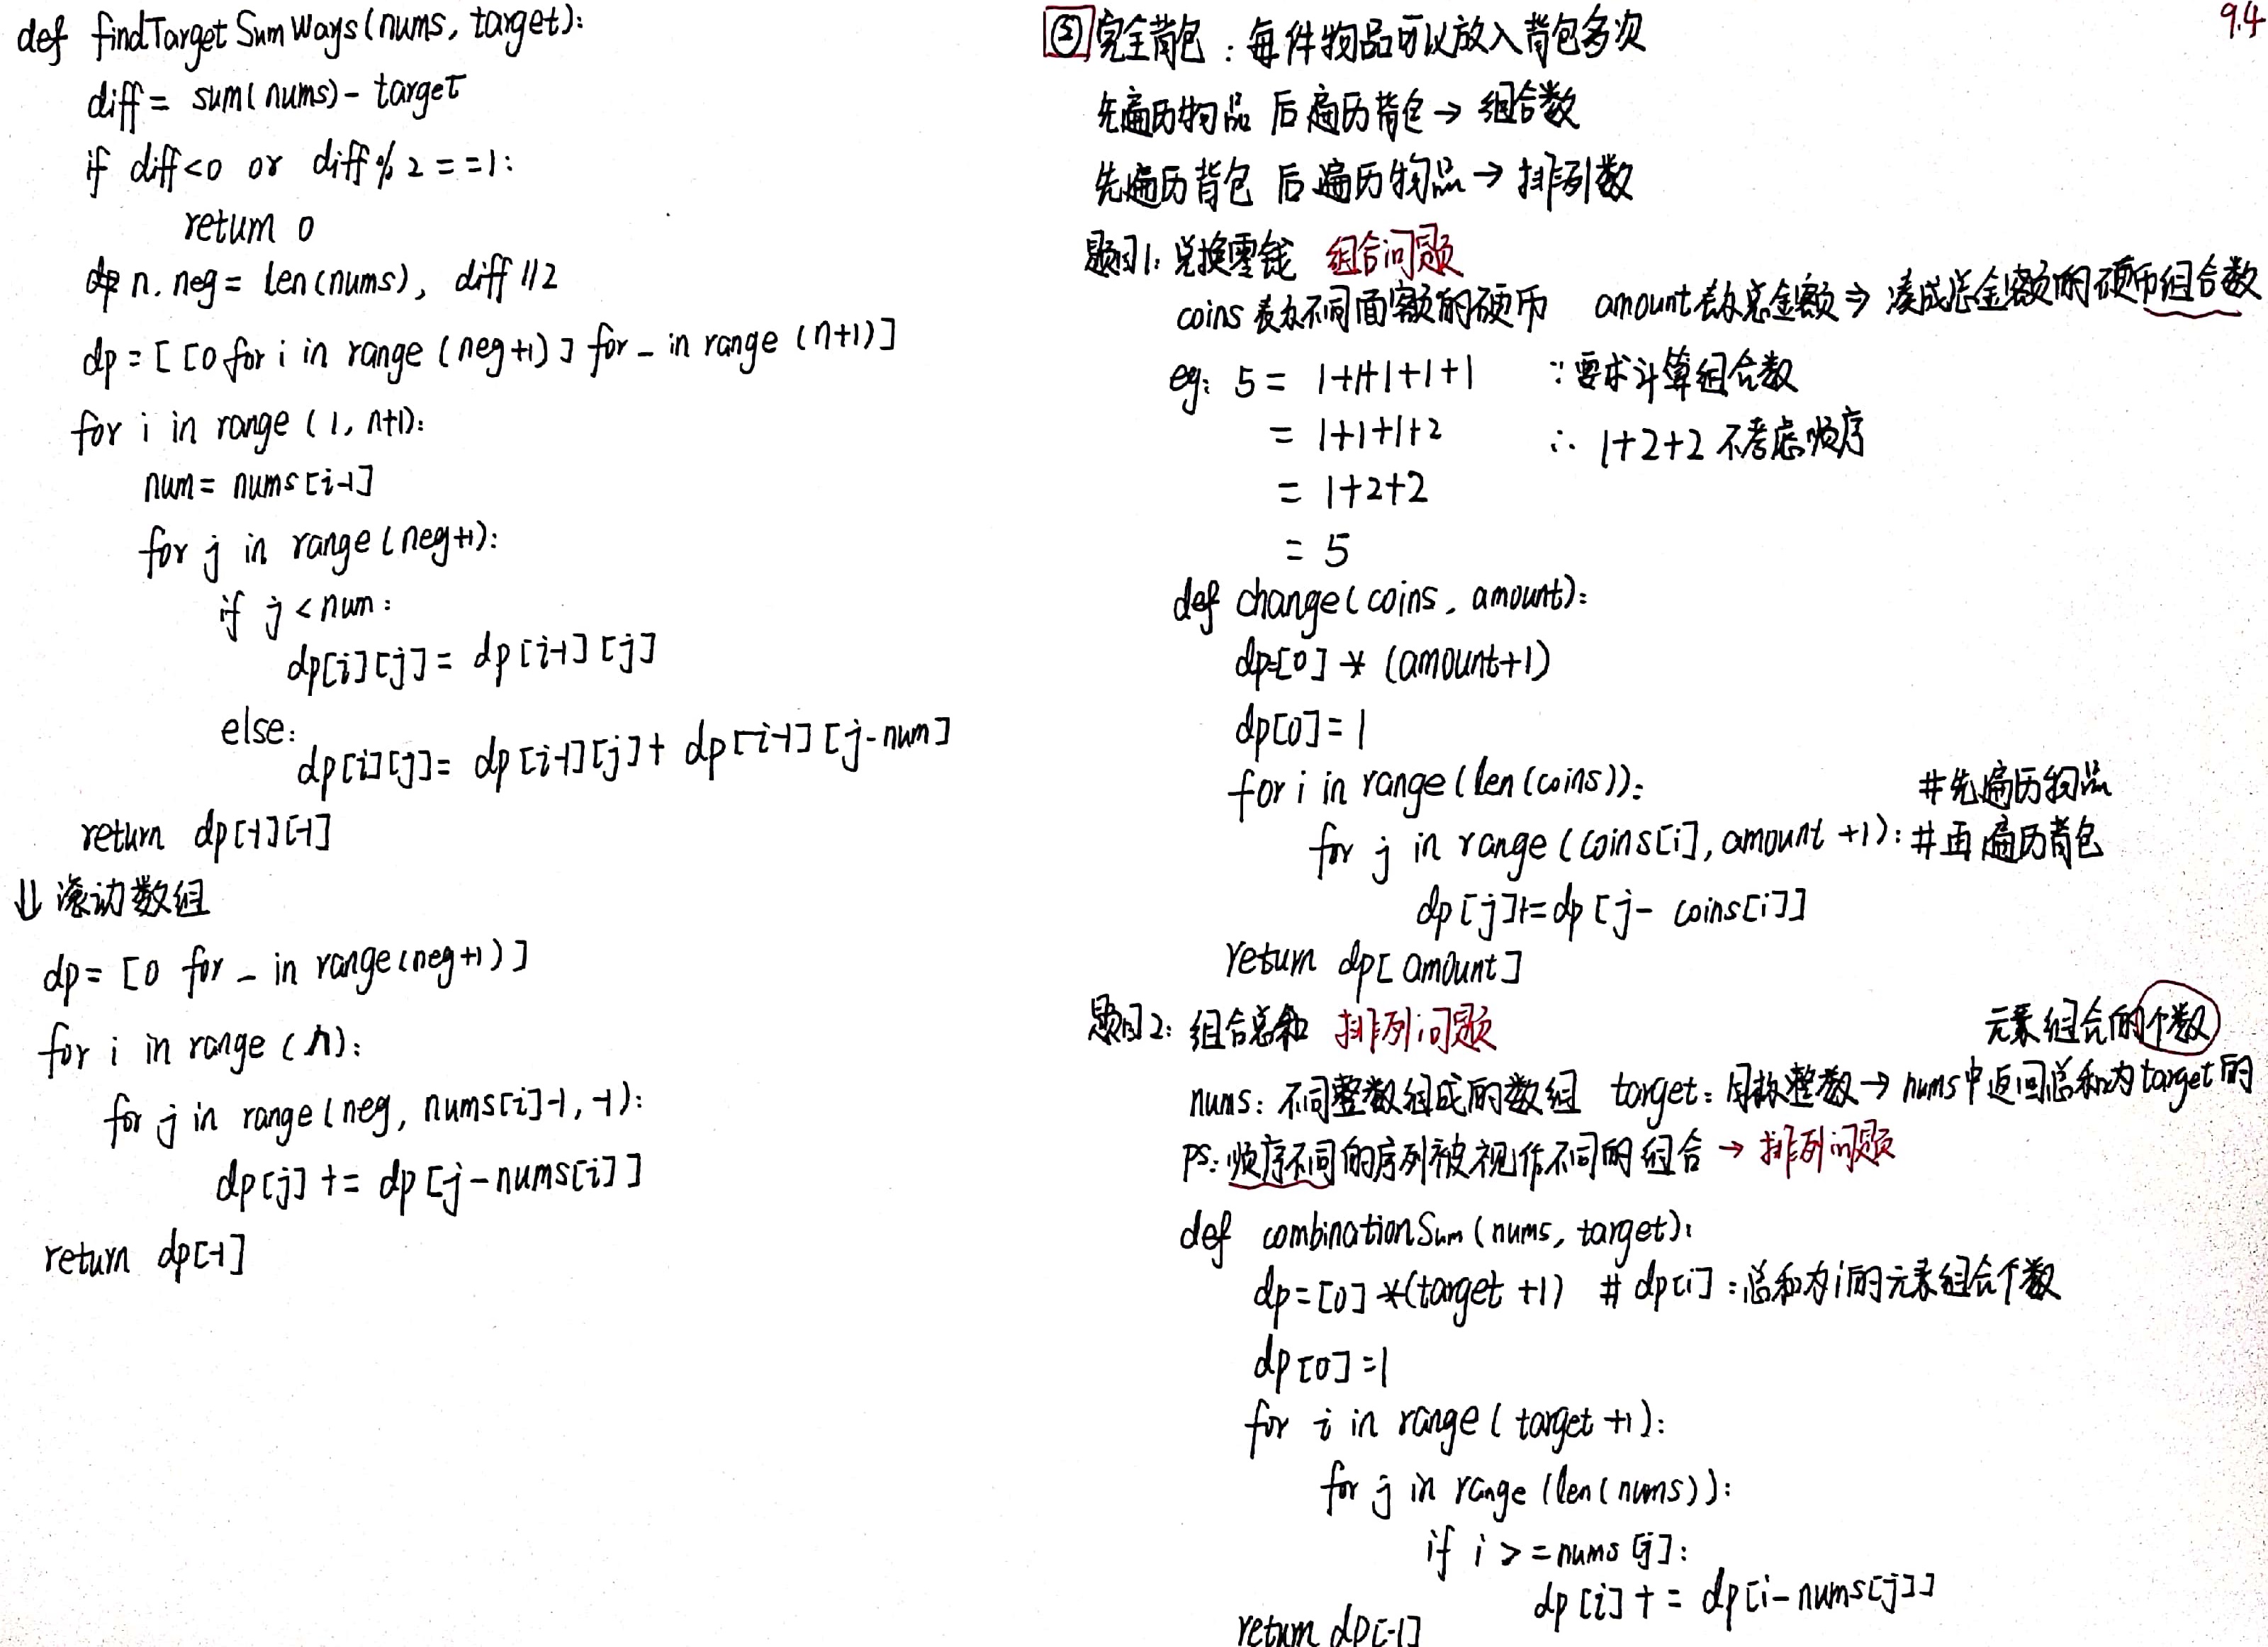 def findTargetSumWays(nums, target):
diff = sum(nums) - target
if diff<0 or diff % 2 ==1:
return 0
n, neg = len(nums), diff //2
dp = [[0 for i in range (neg+1)] for _ in range (n+1)]
for i in range (1, n+1):
num = nums[i-1]
for j in range(neg+1):
if j < num:
dp[i][j] = dp[i-1][j]
else:
dp[i][j] = dp[i-1][j] + dp[i-1][j-num]
return dp[-1][-1]
⇓ 滚动数组
dp = [0 for _ in range(neg+1)]
for i in range (n):
for j in range(neg, nums[i]-1, -1):
dp[j] += dp[j-nums[i]]
return dp[-1]
9.4
完全背包:每件物品可以放入背包多次
先遍历物品 后遍历背包 → 组合数
先遍历背包 后遍历物品 → 排列数
题目1: 兑换零钱 组合问题
coins 表示不同面额的硬币 amount 表示总金额 ⇒ 凑成总金额的硬币组合数
eg: 5 = 1+1+1+1+1 ∵要求计算组合数
= 1+1+1+2 ∴ 1+2+2 不考虑顺序
= 1+2+2
= 5
def change(coins, amount):
dp=[0] * (amount+1)
dp[0] = 1
for i in range(len(coins)): #先遍历物品
for j in range(coins[i], amount +1): #再遍历背包
dp[j]+=dp[j- coins[i]]
return dp[amount]
题目2: 组合总和 排列问题
nums: 不同整数组成的数组 target: 目标整数 → nums中返回总和为target的元素组合的个数
PS: 顺序不同的序列被视作不同的组合 → 排列问题
def combinationSum(nums, target):
dp=[0] *(target +1) # dp[i]:总和为i的元素组合个数
dp[0] =1
for i in range(target +1):
for j in range(len(nums)):
if i >=nums[j]:
dp[i] += dp[i-nums[j]]
return dp[-1]